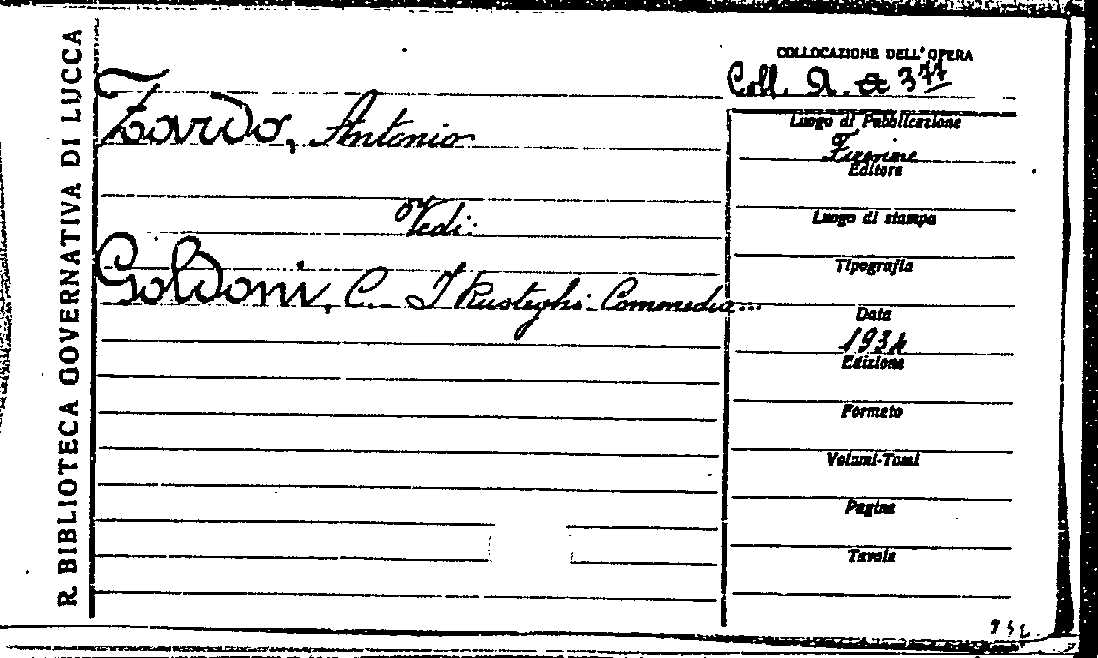 R. BIBLIOTECA GOVERNATIVA DI LUCCA
Zardo, Antonio
Vedi:
Goldoni, C. I Rusteghi. Commedia...
COLLOCAZIONE DELL'OPERA
Coll. A. a 377
Luogo di Pubblicazione
Firenze
Editore
Luogo di stampa
Tipografia
Data
1934
Edizione
Formato
Volumi-Tomi
Pagine
Tavole